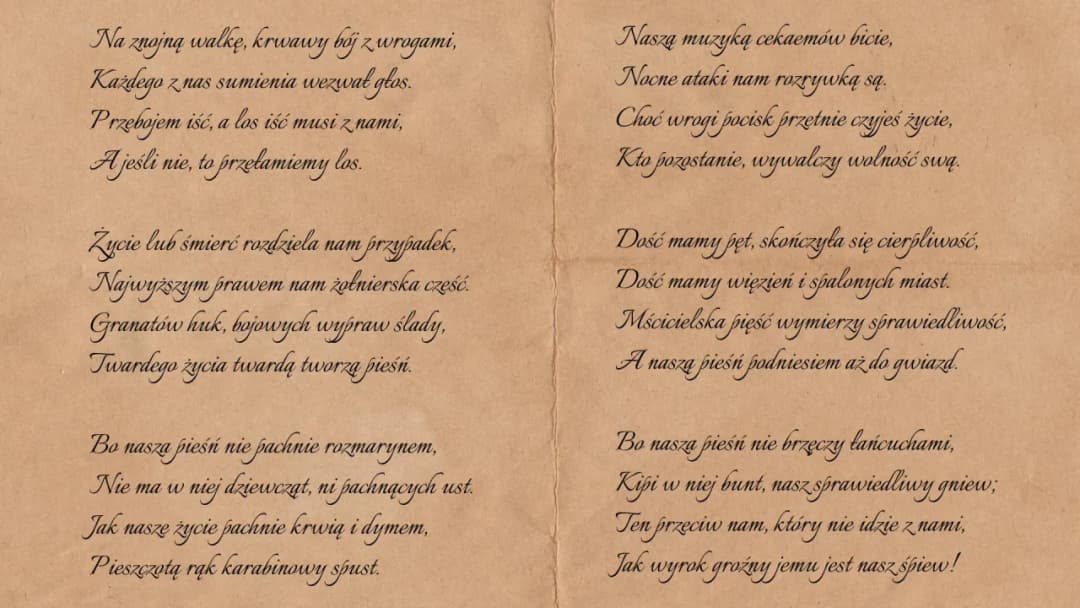 Na znojną walkę, krwawy bój z wrogami,
Każdego z nas sumienia wezwał głos.
Przebojem iść, a los iść musi z nami,
A jeśli nie, to przełamiemy los.
Życie lub śmierć rozdziela nam przypadek,
Najwyższym prawem nam żołnierska cześć.
Granatów huk, bojowych wypraw ślady,
Twardego życia twardą tworzą pieśń.
Bo nasza pieśń nie pachnie rozmarynem,
Nie ma w niej dziewcząt, ni pachnących ust.
Jak nasze życie pachnie krwią i dymem,
Pieszczotą rąk karabinowy spust.
Naszą muzyką cekaemów bicie,
Nocne ataki nam rozrywką są.
Choć wrogi pocisk przetnie czyjeś życie,
Kto pozostanie, wywalczy wolność swą.
Dość mamy pęt, skończyła się cierpliwość,
Dość mamy więzień i spalonych miast.
Mścicielska pięść wymierzy sprawiedliwość,
A naszą pieśń podniesiem aż do gwiazd.
Bo nasza pieśń nie brzęczy łańcuchami,
Kipi w niej bunt, nasz sprawiedliwy gniew;
Ten przeciw nam, który nie idzie z nami,
Jak wyrok groźny jemu jest nasz śpiew!